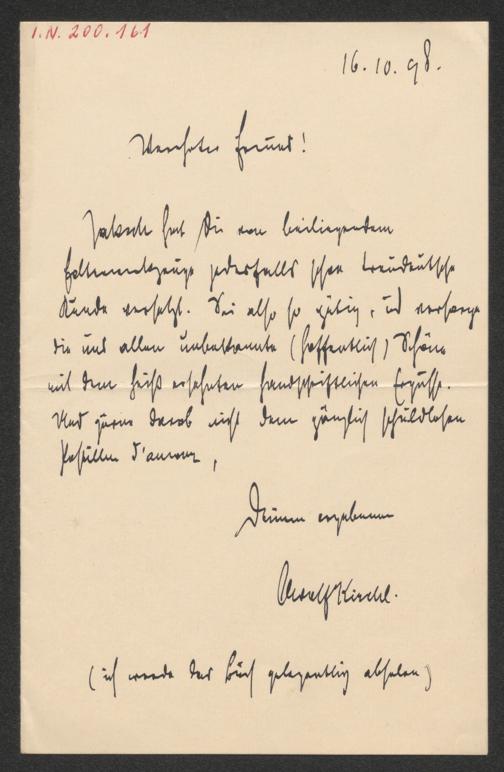 I.N. 200.161
16.10.98.
Verehrter Freund!
Jaksch hat Dir von beiliegendem
jedenfalls schon treudeutsche
Kunde versetzt. Sei also so gütig, und versorge
die uns allen unbekannte (hoffentlich) Schöne
mit dem heiß ersehnten handschriftlichen Ergusse.
Und zürne darob nicht dem gänzlich schuldlosen
Postillon d'amour,
Deinem ergebenen
Adolf Kirchl.
(ich werde das Buch gelegentlich abholen)